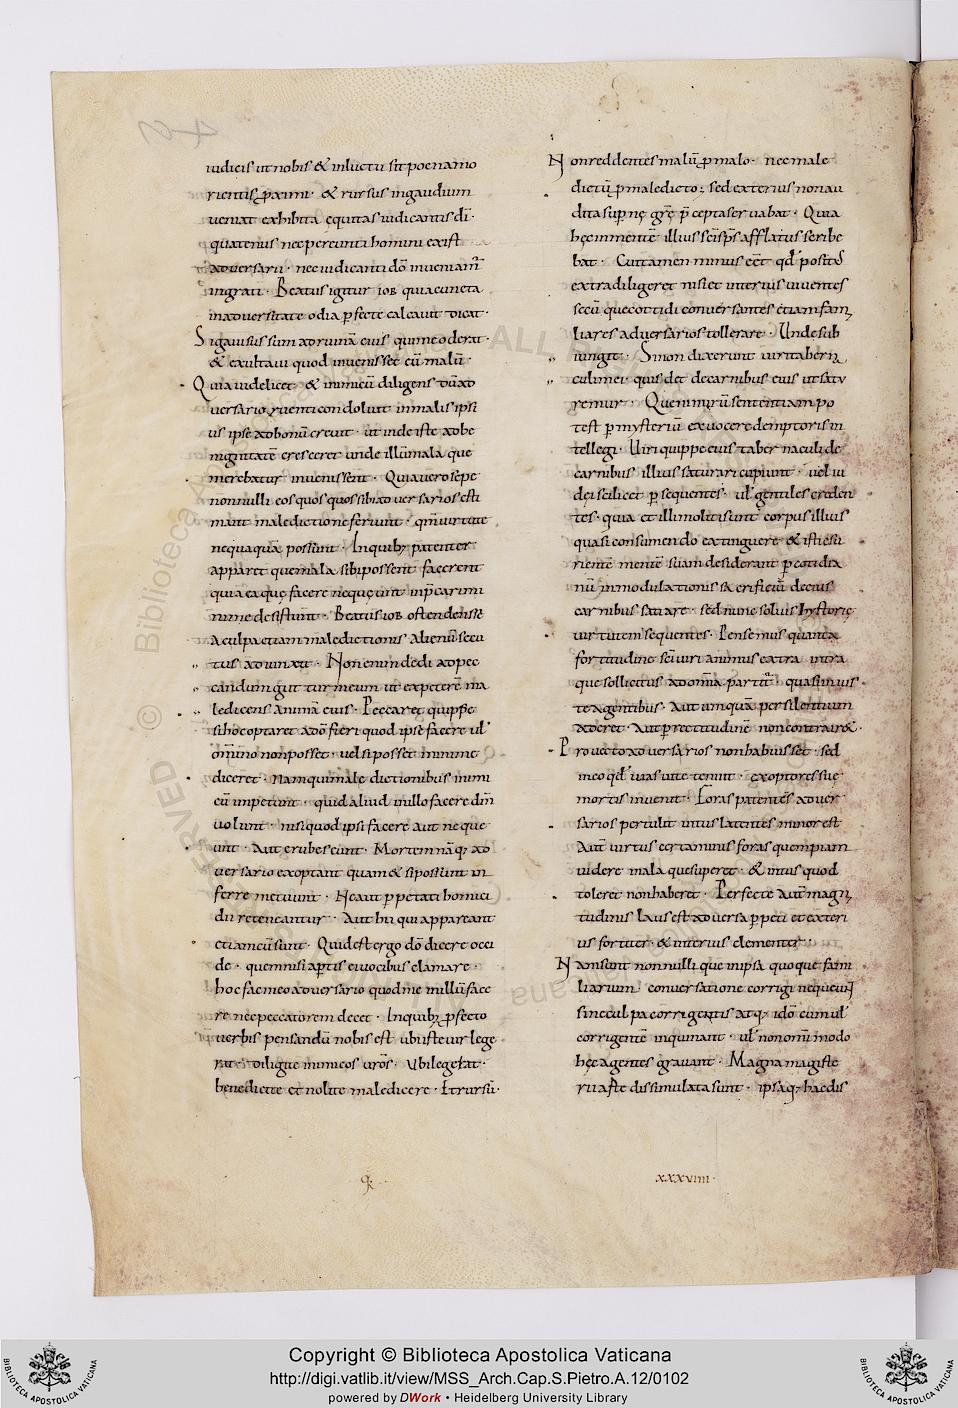 iudicis ut nobis & inluctu sit poena mo
rientis ꝓximi · & rursus in gaudium
ueniat exhibita ęquitas iudicantis dī ·
quatenus nec pereunti homini exist
aduersarii · nec iudicanti dō inueniam̄
ingrati · Beatus igitur iob quia cuncta
in aduersitate odia ꝑfecte calcauit dicat ·
Si gauisus sum ad ruinā eius qui me oderat ·
& exultaui quod inuenisset eū malū ·
Quia uidelicet & inimicū diligens dū ad
uersario ruenti condoluit in malis ipsi
us ipse ad bonū creuit · ut inde iste ad be
nignitatē cresceret unde illū mala que
merebatur inuenissent · Quia uero sępe
nonnulli eos quos quos sibi aduersarios esti
mant maledictione feriunt · qm̄ uirtute
nequaquā possunt · In quibȝ patenter
apparet que mala sibi possent facerent
quia ea quę facere nequeunt inp̄cari mi
nime desistunt · Beatus iob ostendens se
a culpa etiam maledictionis alienū secu
tus adiunxit · Non enim dedi ad pec
candum guttur meum ut expeterē ma
ledicens animā eius · Peccaret quippe
si hoc optaret a dō fieri quod ipse facere uł
om̄ino non posset · uel si posset minime
diceret · Nam qui maledictionibus inimi
cū impetunt · quid aliud in illo facere dm̄
uolunt · nisi quod ipsi facere aut neque
unt · aut erubescunt · Mortem nāqȝ ad
uersario exoptant quam & si possunt in
ferre metuunt · Ne aut ꝑpetrati homici
dii reteneantur · aut hii qui appareant
etiam cū sunt · Quid est ergo dō dicere occi
de · quem nisi aꝑtis ei uocibus clamare ·
hoc fac meo aduersario quod me in illū face
re nec peccatorem decet · In quibȝ ꝓfecto
uerbis pensandū nobis est ubi iste uir lege
rat · diligite inimicos uros · Ubi legerat ·
benedicite et nolite maledicere · Et rursū ·
Non reddentes malū ꝓ malo · nec male
dictū ꝓ maledicto ; sed exterius non au
dita supernę grę p̄cepta seruabat · Quia
hęc in mente illius sci sps afflatus scribe
bat · Cui tamen minus eēt qd' positos
extra diligeret nisi et interius uiuentes
secū quecottidi conuersantes etiam fam
liares aduersarios tollerare · Unde sub
iungit · Si non dixerunt uiri taberna
culi mei · quis det de carnibus eius ut satu
remur · Que nimirū sententiam po
test ꝑ mysteriū ex uoce redemptoris in
tellegi · Uiri quippe eius tabernaculi de
carnibus illius saturari cupiunt · uel iu
dęi scilicet ꝑsequentes · uł gentiles creden
tes · quia et illi moliti sunt corpus illius
quasi consumendo extinguere & isti esu
rientē mentē suam desiderant ꝑ cotidia
nū immodulationis sacrificiū de eius
carnibus satiare · sed nunc solius hystorię
uirtutem sequentes · Pensemus quanta
fortitudine sci uiri animus extra intra
que sollicitus ad om̄ia partitur · quasi in uis
te agentibus · Aut umquā per silentium
taceret · Aut per rectitudinē non contrair& ·
Prouecto aduersarios non habuisset · sed
in eo qd' iuias uite tenuit · exoptores suę
mortis inuenit · Foras patentes aduer
sarios pertulit intus latentes minor est
Aut uirtus certaminus foras quempiam
uidere mala que superet · & intus quod
toleret non haberet · Perfecte aut magni
tudinis laus est aduersa ꝑpeti et exteri
us fortiter · & interius clementer ·
Nam sunt nonnulli que in ipsa quoque fami
liarum conuersatione corrigi nequeunt
sine culpa corrigentis atqȝ idō cum uł
corrigentē inquinant · uł non omīmodo
hęc agentes grauant · Magna magiste
rii arte dissimulata sunt · ipsaqȝ haec dis
xxxviiii ·
Copyright © Biblioteca Apostolica Vaticana
http://digi.vatlib.it/view/MSS_Arch.Cap.S.Pietro.A.12/0102
powered by DWork • Heidelberg University Library